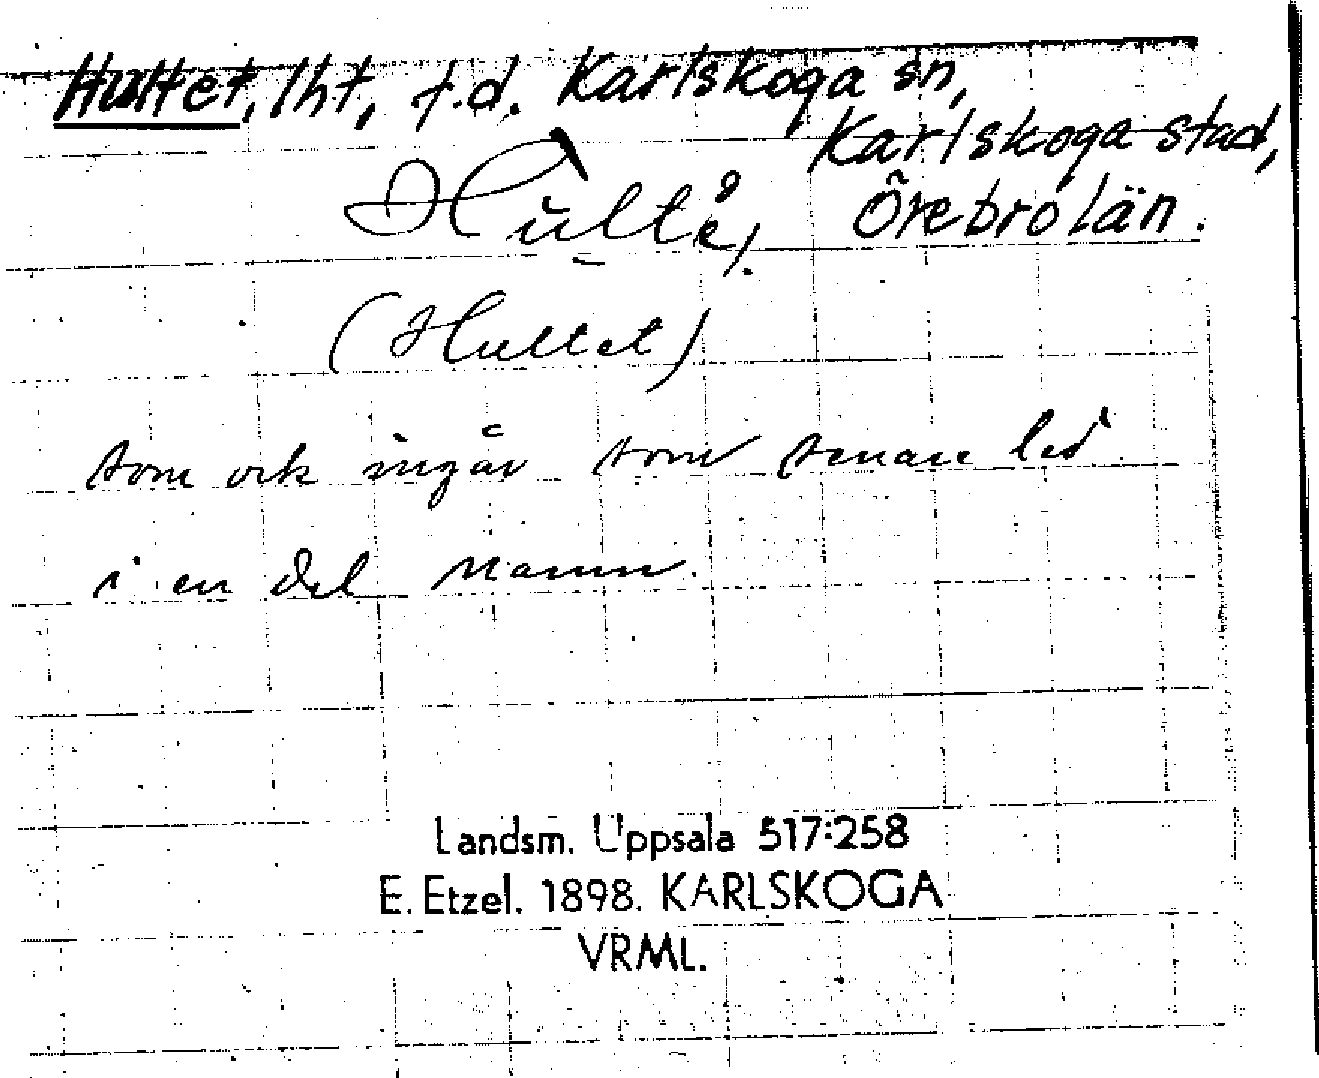 Hultet, lht, f.d. Karlskoga sn,
Karlskoga stad,
Örebro län.
Hultè̊,
(Hultet)
som ock ingår som senare led
i en del namn.
Landsm. Uppsala 517:258
E. Etzel. 1898. KARLSKOGA
VRML.